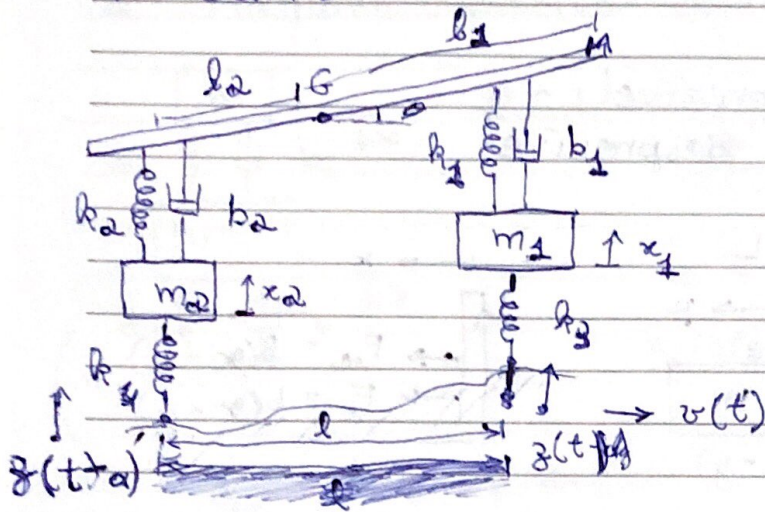 l1
l2
G
k1
b1
k2
b2
m1
x1
m2
x2
k3
k4
l
v(t)
z(t+a)
z(t)
l